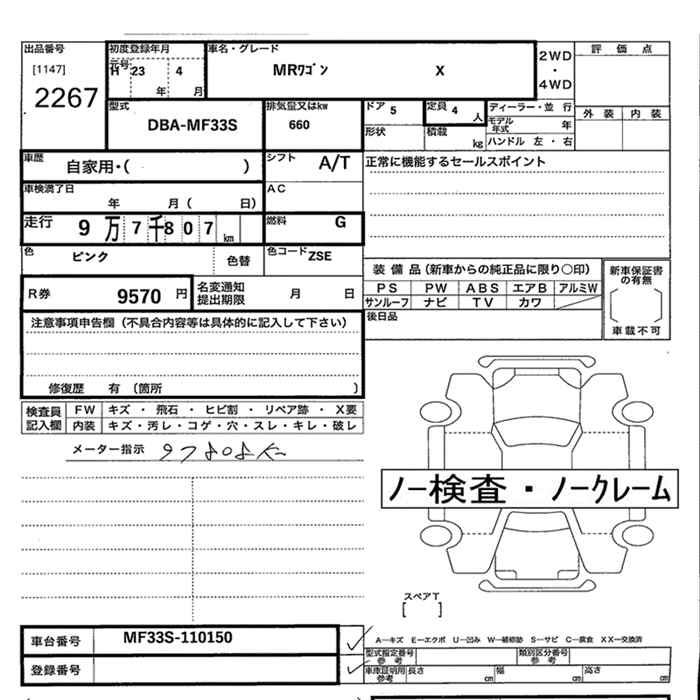 出品番号
[1147]
2267
初度登録年月
元号
H 23 4
年 月
車名・グレード
MRワゴン X
2WD
・
4WD
評価点
外装 内装
型式
DBA-MF33S
排気量又はkw
660
ドア 5
定員 4 人
形状
積載 kg
ディーラー・並行
モデル年式 年
ハンドル 左・右
車歴
自家用・( )
シフト
A/T
正常に機能するセールスポイント
車検満了日
年 月( 日)
AC
走行
9万7千807km
燃料
G
色
ピンク
色替
色コード
ZSE
装備品(新車からの純正品に限り○印)
PS PW ABS エアB アルミW
サンルーフ ナビ TV カワ
新車保証書の有無
車載不可
R券
9570円
名変通知
提出期限
月 日
後日品
注意事項申告欄(不具合内容等は具体的に記入して下さい)
修復歴 有(箇所 )
検査員記入欄
FW キズ・飛石・ヒビ割・リペア跡・X要
内装 キズ・汚レ・コゲ・穴・スレ・キレ・破レ
メーター指示 97808K
ノー検査・ノークレーム
スペアT
[ ]
車台番号
MF33S-110150
登録番号
A―キズ E―エクボ U―凹み W―補修跡 S―サビ C―腐食 XX―交換済
型式指定番号
参考
類別区分番号
参考
車庫証明用
参考
長さ cm
幅 cm
高さ cm